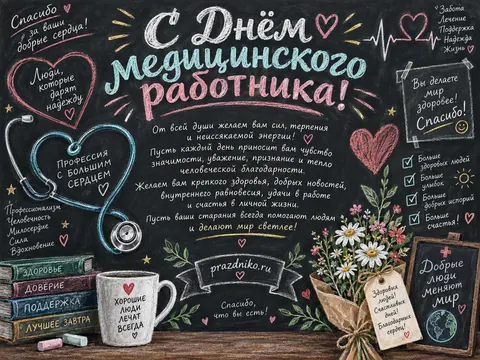 Спасибо
за ваши
добрые сердца!
С Днём
медицинского
работника!
Забота
Лечение
Поддержка
Надежда
Жизнь
Люди,
которые
дарят
надежду
Вы делаете
мир
здоровее!
Спасибо!
От всей души желаем вам сил, терпения
и неиссякаемой энергии!
Пусть каждый день приносит вам чувство
значимости, уважение, признание и тепло
человеческой благодарности.
Желаем вам крепкого здоровья, добрых новостей,
внутреннего равновесия, удачи в работе
и счастья в личной жизни.
Пусть ваши старания всегда помогают людям
и делают мир светлее!
ПРОФЕССИЯ
С БОЛЬШИМ
СЕРДЦЕМ
Больше
здоровых людей
Больше
улыбок
Больше
добрых историй
Больше
счастья!
Профессионализм
Человечность
Милосердие
Сила
Вдохновение
ЗДОРОВЬЕ
ДОВЕРИЕ
ПОДДЕРЖКА
ЛУЧШЕЕ ЗАВТРА
ХОРОШИЕ
ЛЮДИ
ЛЕЧАТ
ВСЕГДА
prazdniko.ru
Спасибо,
что вы есть!
Здоровых
людей!
Счастливых
дней!
Благодарных
сердец!
Добрые
люди
меняют
мир